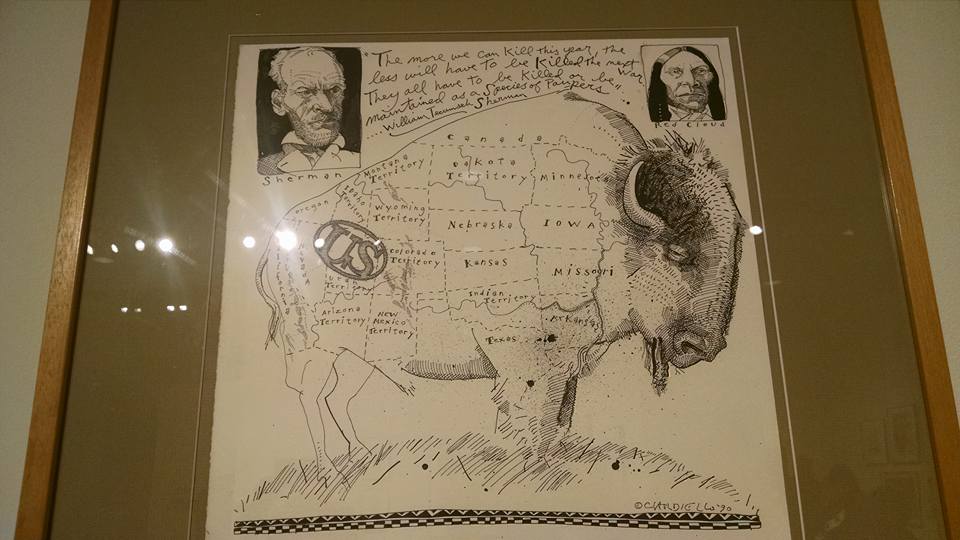 "The more we can Kill this year, the
less will have To be Killed the next war
They all have to be killed or be
maintained as a Species of Paupers"...
...William Tecumseh Sherman
Sherman
Red Cloud
Canada
Montana
Territory
Dakota
Territory
Minnesota
Idaho
Territory
Oregon
Wyoming
Territory
Nebraska
Iowa
US
Nevada
Utah
Territory
Colorado
Territory
Kansas
Missouri
Indian
Territory
Arizona
Territory
New
Mexico
Territory
Texas
Arkansas
©CIARDIELLO '90